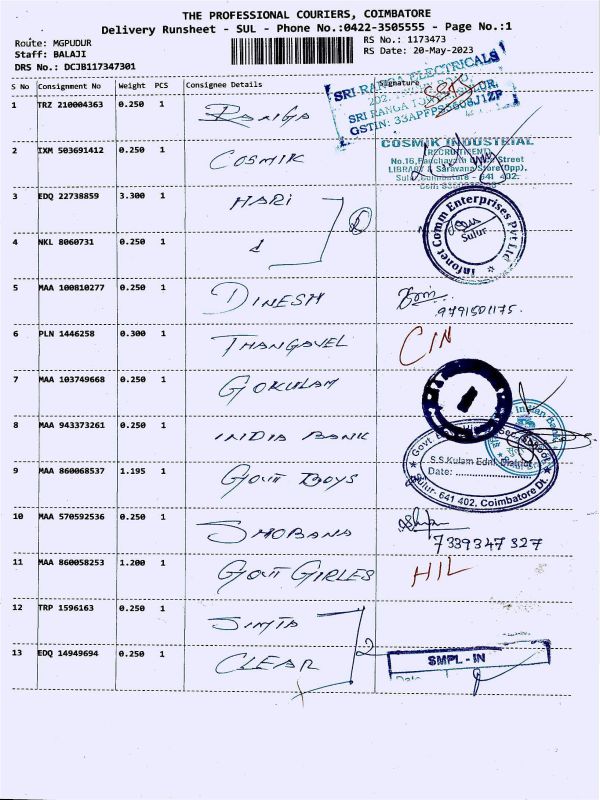 THE PROFESSIONAL COURIERS, COIMBATORE
Delivery Runsheet - SUL - Phone No.:0422-3505555 - Page No.:1
Route: MGPUDUR
Staff: BALAJI
DRS No.: DCJB117347301
RS No.: 1173473
RS Date: 20-May-2023
S No Consignment No Weight PCS Consignee Details Signature
1 TRZ 210004363 0.250 1 RANIGA
SRI RANGA ELECTRICALS
SRI RANGA
GSTIN: 33APFPS5608J1ZP
2 IXM 503691412 0.250 1 COSMIK
COSMIK INDUSTRIAL
(RECRUITMENT)
No.16, Panchayath Street
LIBRARY & Saravana Store(Opp).
Sulur, Coimbatore - 641 402.
3 EDQ 22738859 3.300 1 HARI
4 NKL 8060731 0.250 1
Infonet Comm Enterprises Pvt Ltd
Sulur
5 MAA 100810277 0.250 1 DINESH
9791501175.
6 PLN 1446258 0.300 1 THANGAVEL CIN
7 MAA 103749668 0.250 1 GOKULAM
8 MAA 943373261 0.250 1 INDIA BANK
Indian Bank
9 MAA 860068537 1.195 1 GOVT BOYS
S.S.Kulam Ednl. District
Date:
Sulur- 641 402, Coimbatore Dt.
10 MAA 570592536 0.250 1 SHOBANA
7339347327
11 MAA 860058253 1.200 1 GOVT GIRLES HIL
12 TRP 1596163 0.250 1 SIMTA
2
13 EDQ 14949694 0.250 1 CLEAR
SMPL - IN
Date